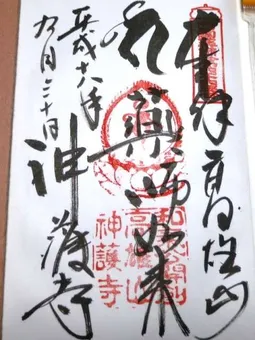 奉拝 高雄山
薬師如来
平成十八年
九月三十日
神護寺
高雄山
神護寺